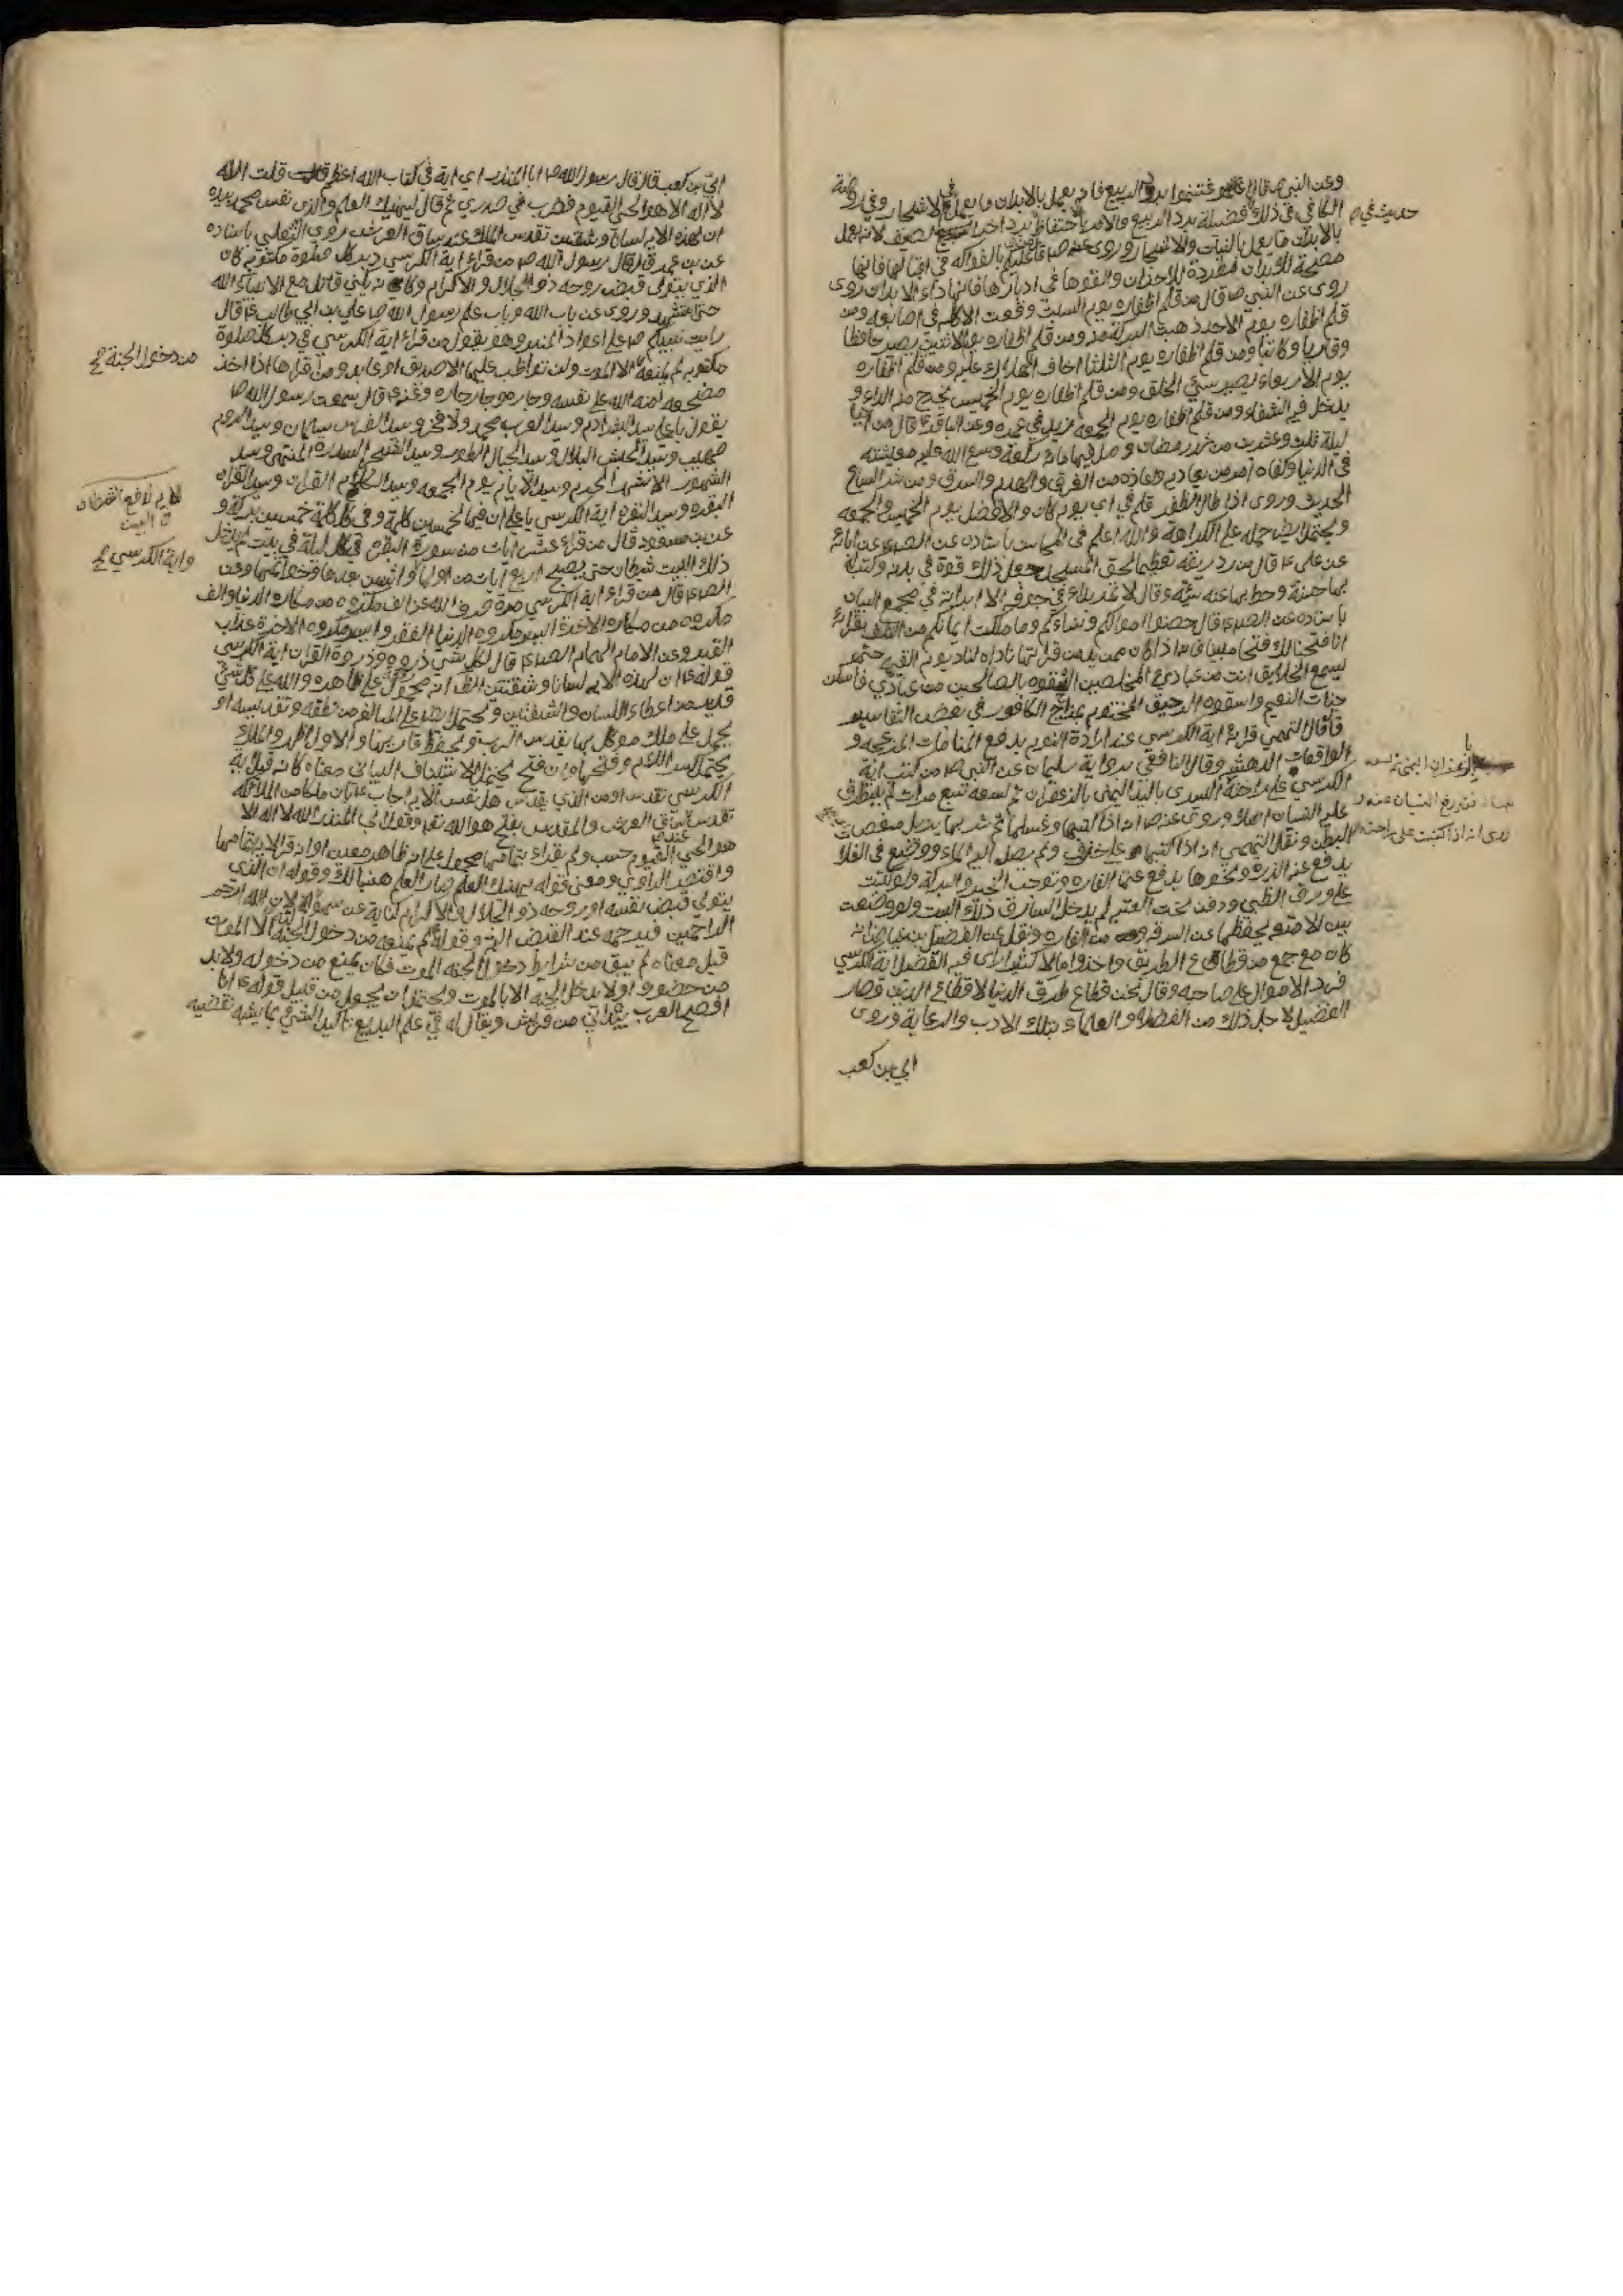 وعن النبي ص قال اغتنموا برد الربيع فانه يعمل بالابدان ما يعمل في الاشجار وفي روضة
الكافي في ذلك فضيلة برد الربيع والامر باحتفاظ برد اخر الصيف لانه يعمل
بالابدان ما يعمل بالنبات والاشجار وروي عنه ص عليكم بالفواكه في اقبالها فانها
مصحة للابدان مطردة للاحزان والقوها في ادبارها فانها داء الابدان روي
روي عن النبي ص قال من قلم اظفاره يوم السبت وقعت الاكلة في اصابعه ومن
قلم اظفاره يوم الاحد ذهبت البركة منه ومن قلم اظفاره يوم الاثنين يصير حافظا
وقاريا وكاتبا ومن قلم اظفاره يوم الثلثا اخاف الهلاك عليه ومن قلم اظفاره
يوم الاربعاء يصير سيئ الخلق ومن قلم اظفاره يوم الخميس يخرج منه الداء و
يدخل فيه الشفاء ومن قلم اظفاره يوم الجمعه يزيد في عمره وعن الباقر ع قال من احيا
ليلة ثلث وعشرين من شهر رمضان وصلى فيها مائة ركعة وسع الله عليه معيشته
في الدنيا وكفاه امر من يعاديه واعاذه من الغرق والهدم والسرق ومن شر السباع
الحديث وروي اذا طال الظفر قلم في اي يوم كان والافضل يوم الخميس والجمعه
ويحتمل حمله على الكراهة والله اعلم في المحاسن باسناده عن الصادق عن ابائه
عن علي ع قال من رد ريقه تعظيما لحق المسجد جعل ذلك قوة في بدنه وكتب له
بها حسنة وحط بها عنه سيئة وقال لا تمر بداء في جوفه الا ابراته في مجمع البيان
باسناده عن الصادق ع قال حصنوا اموالكم ونساءكم وما ملكت ايمانكم من التلف بقراءة
انا فتحنا لك فتحا مبينا فانه اذا كان ممن يدمن قراءتها ناداه مناد يوم القيمة حتى
يسمع الخلايق انت من عبادي المخلصين الحقوه بالصالحين من عبادي فاسكنوه
جنات النعيم واسقوه الرحيق المختوم بمزاج الكافور في بعض التفاسير
قال التميمي قراءة اية الكرسي عند ارادة النوم يدفع المنامات المزعجة و
الواقعات الدهشة وقال اليافعي برواية سليمان عن النبي ص من كتب اية
الكرسي على راحته اليسرى باليد اليمنى بالزعفران ثم لسعه سبع مرات لم يتطرق
عليه النسيان ابدا وروي عنه ص انه اذا كتبها وغسلها ثم شربها يزيل مغصات
البطن ونقل التميمي انه اذا كتبها على خزف ولم يصل اليه الماء ووضع في الغلة
يدفع عنه الذره ونحوها يدفع عنها الفاره وتوجب الخير والبركة ولو كتبت
على ورق الظبي ودفن تحت العتبة لم يدخل السارق ذلك البيت ولو وضعت
بين الامتعه يحفظها عن السرقه ومن الفاره ونقل عن الفضيل بن عياض انه
كان مع جمع من قطاع الطريق واخذوا مالا كثيرا راى فيه الفضيل اية الكرسي
فرد الاموال على صاحبه وقال نحن قطاع طرق الدنيا لا قطاع الدين فصار
الفضيل لاجل ذلك من الفضلاء والعلماء وبتلك الادب والرعاية وروي
ابي بن كعب
حديث في
ابي بن كعب قال قال رسول الله ص ابا المنذر اي اية في كتاب الله اعظم قلت الله
لا اله الا هو الحي القيوم فضرب في صدري ثم قال ليهنيك العلم والذي نفس محمد بيده
ان لهذه الاية لسانا وشفتين تقدس الملك عند ساق العرش روى الثعلبي باسناده
عن بن عمر قال قال رسول الله ص من قراء اية الكرسي دبر كل صلوة مكتوبة كان
الذي يتولى قبض روحه ذو الجلال والاكرام وكان كمن قاتل مع الانبياء الله
حتى استشهد وروي عن باب الله وباب علم رسول الله ص علي بن ابي طالب ع قال
رايت نبيكم ص على اعواد المنبر وهو يقول من قراء اية الكرسي في دبر كل صلوة
مكتوبة لم يمنعه الا الموت ولن تواظب عليها الا صديق او عابد ومن قراها اذا اخذ
مضجعه امنه الله على نفسه وجاره وجار جاره وعنه ع قال سمعت رسول الله ص
يقول يا علي سيد البشر ادم وسيد العرب محمد ولا فخر وسيد الفرس سلمان وسيد الروم
صهيب وسيد الحبش بلال وسيد الجبال الطور وسيد الشجر السدرة المنتهى وسيد
الشهور الاشهر الحرم وسيد الايام يوم الجمعه وسيد الكلام القران وسيد القران
البقره وسيد البقره اية الكرسي يا علي ان فيها لخمسين كلمة وفي كل كلمة خمسين بركة و
عن بن مسعود قال من قراء عشر ايات من سورة البقرة في كل ليلة في بيت لم يدخل
ذلك البيت شيطان حتى يصبح اربع ايات من اولها واثنين بعدها وخواتيمها وعن
الصادق ع قال من قراء اية الكرسي مرة صرف الله عنه الف مكروه من مكاره الدنيا والف
مكروه من مكاره الاخرة ايسر مكروه الدنيا الفقر وايسر مكروه الاخرة عذاب
القبر وعن الامام الهمام الصادق ع قال لكل شي ذروه وذروة القران اية الكرسي
قوله ع ان لهذه الاية لسانا وشفتين الظ انه محمول على ظاهره والله على كل شي
قدير من اعطاء اللسان والشفتين ويحتمل
يحمل على ملك موكل بها يقدس الرب ويحفظ قاريها والاول اظهر والملك
يحتمل كسر اللام وفتحها وان فتح يحتمل الاستيناف البياني معناه كانه قيل اية
الكرسي تقدس او من الذي يقدس هل نفس الاية اجاب ع بان ملكا من الملائكه
تقدس ساق العرش والمقدس بفتح هو الله تعالى وقول ابي المنذر الله لا اله الا
هو الحي القيوم حسب ولم يقراء بتمامها محمول على انه ظاهر معين او انه قرا الاية بتمامها
واقتصر الراوي ومعنى قوله يهنيك العلم صار العلم هنيئا لك وقوله ان الذي
يتولى قبض نفسه او روحه ذو الجلال والاكرام كناية عن سهولة لان الله ارحم
الراحمين فيرحمه عند القبض الروح وقوله لم يمنعه من دخول الجنة الا الموت
قيل معناه لم يبق من شرايط دخول الجنه الا الموت فكان يمنع من دخوله ولابد
من حضوره او لا يدخل الجنه الا بالموت ويحتمل ان يحمل من قبيل قوله ع انا
افصح العرب بيد اني من قريش ويقال له في علم البديع تاكيد الشي بما يشبه نقيضه
من دخول الجنة
واية الكرسي